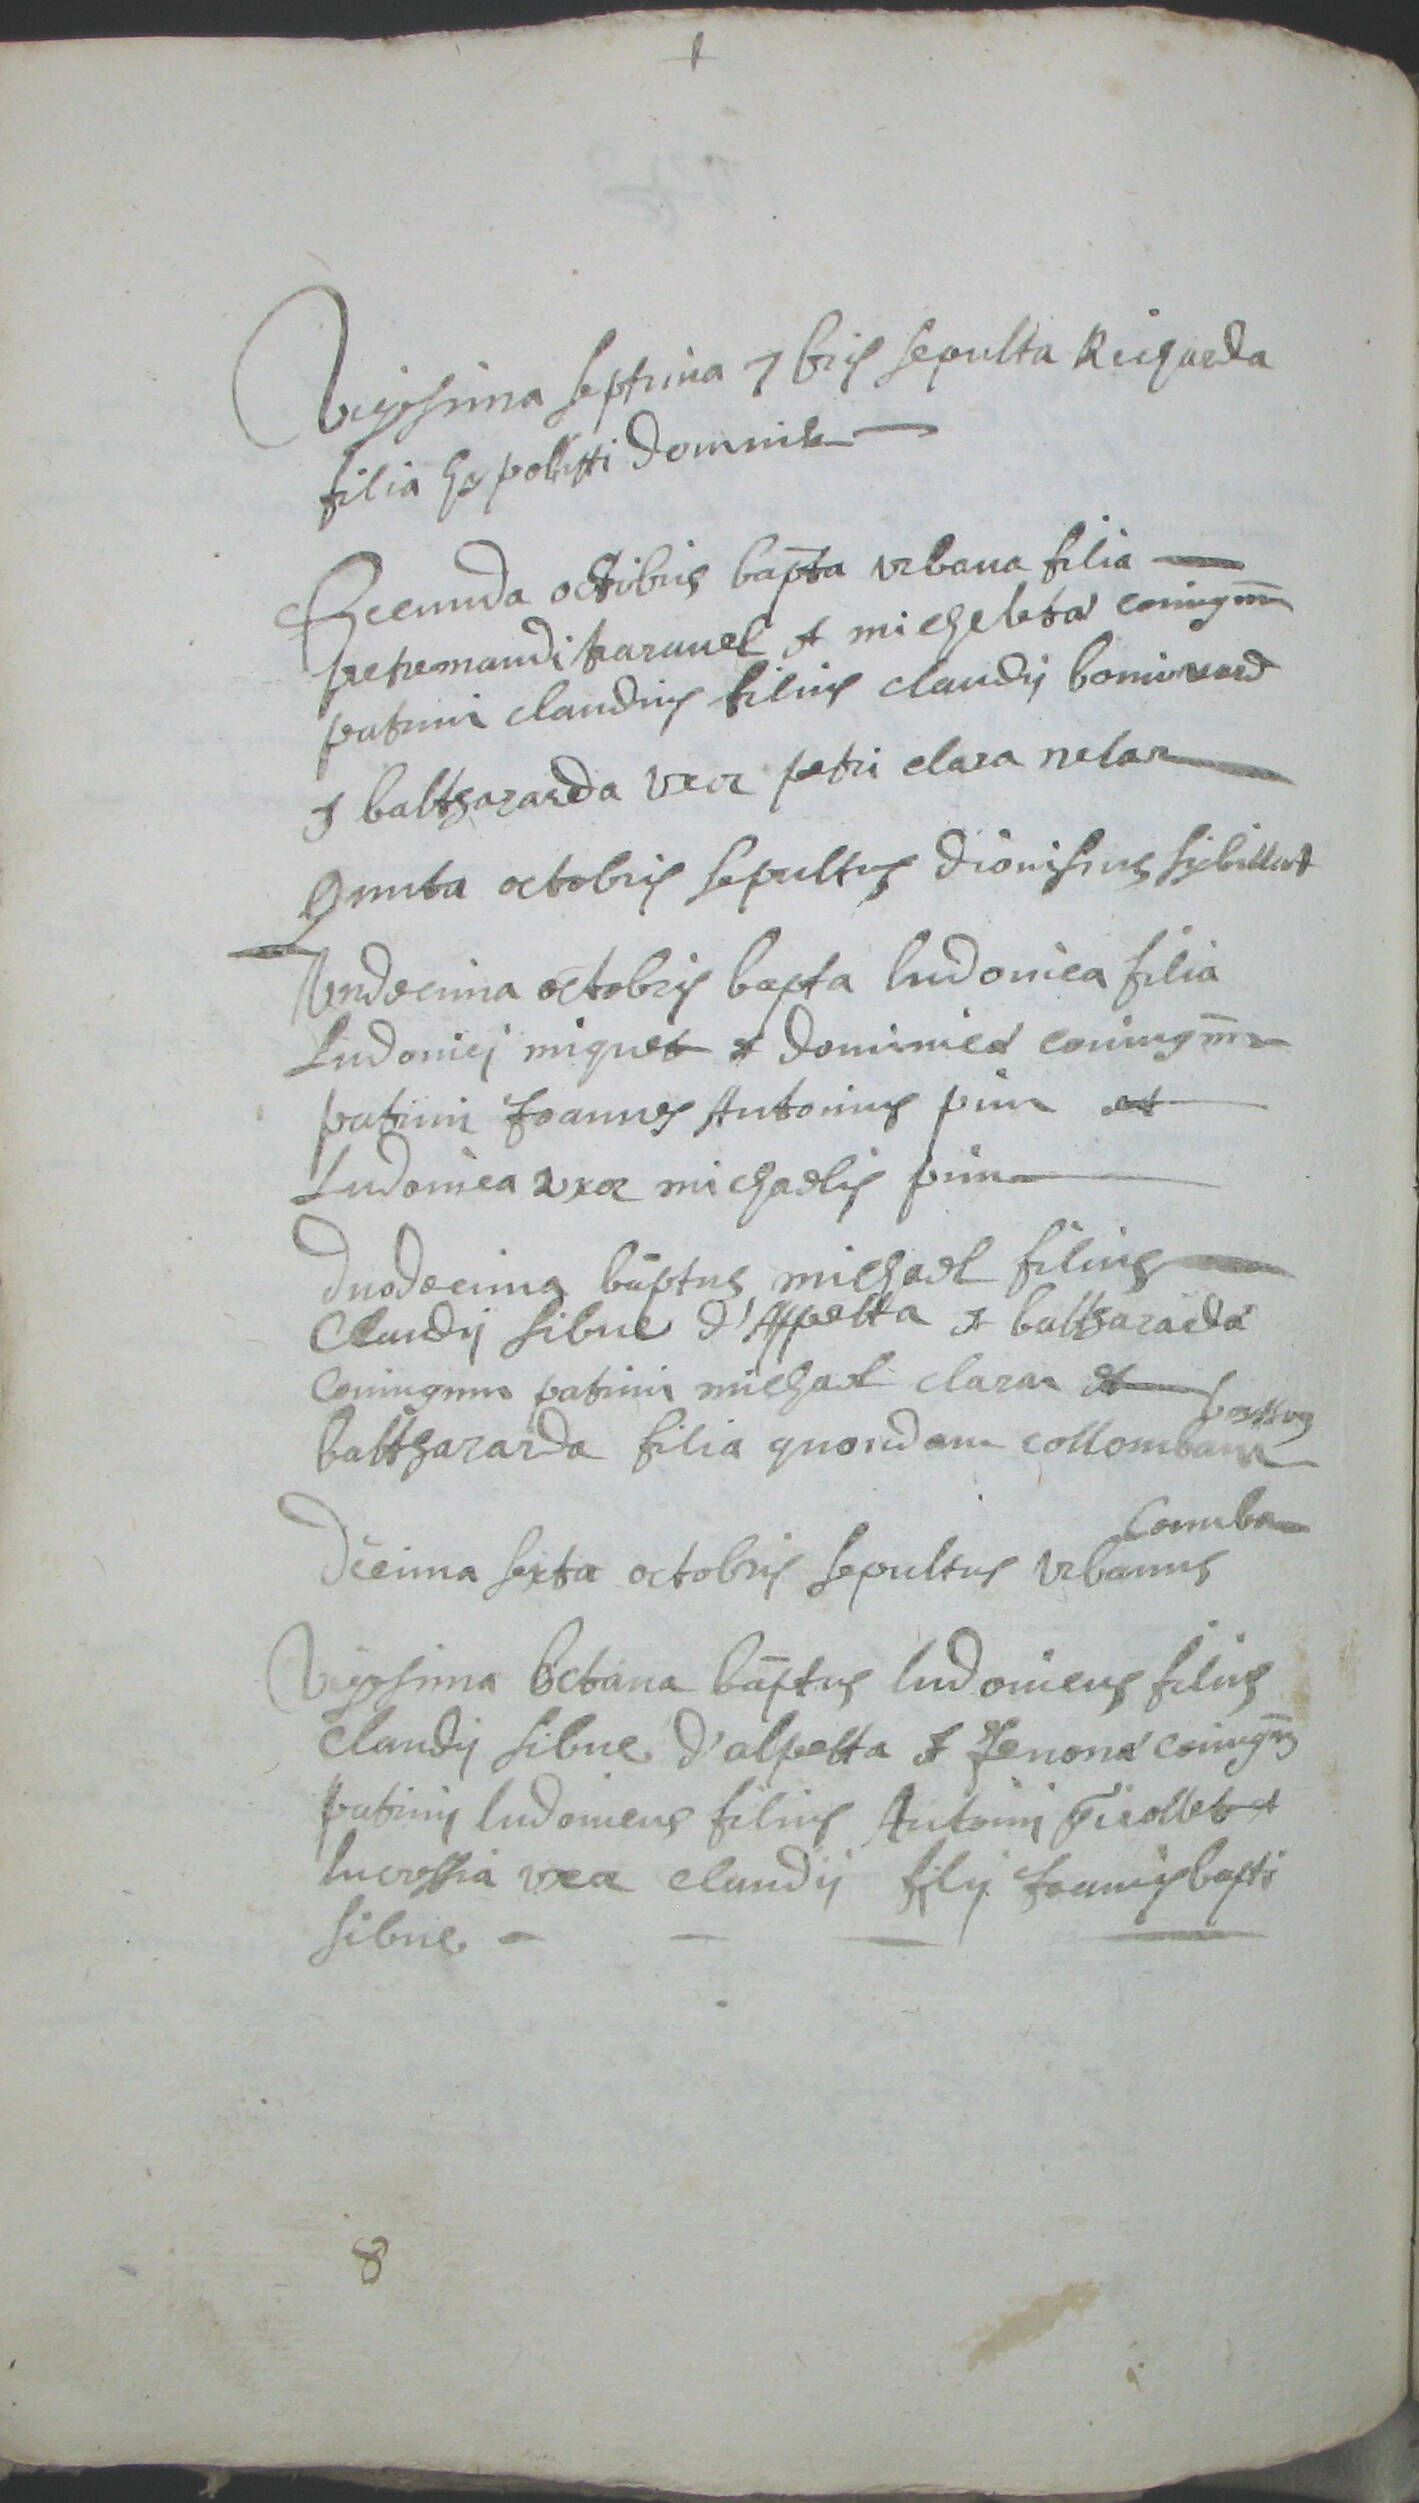 Vigesima septima 7bris sepulta Richarda
filia hypolitti Domnik
Secunda octobris bapta urbana filia
petremandi karauel et micheleta coniugum
patrini claudius filius claudij boniuard
et baltharzarda uxor petri clara
Quinta octobris sepultus dionisius sybillat
Undecima octobris bapta ludovica filia
Ludovici miquet et dominica coniugum
patrini Joannes Antonius pin et
Ludovica uxor michaelis pin
Duodecima baptus michael filius
Claudij sibue d'Aspetta et baltharzarda
Coniugum patrini michael claraz et
baltharzarda filia quondam collombani
Comba
Decima sexta octobris sepultus Urbanus
Vigesima octava baptus ludovicus filius
Claudij sibue d'alpetta et coniugum
patrini ludovicus filius Antonij et
lucressia uxor claudij filij Joannisbapti
sibue
8